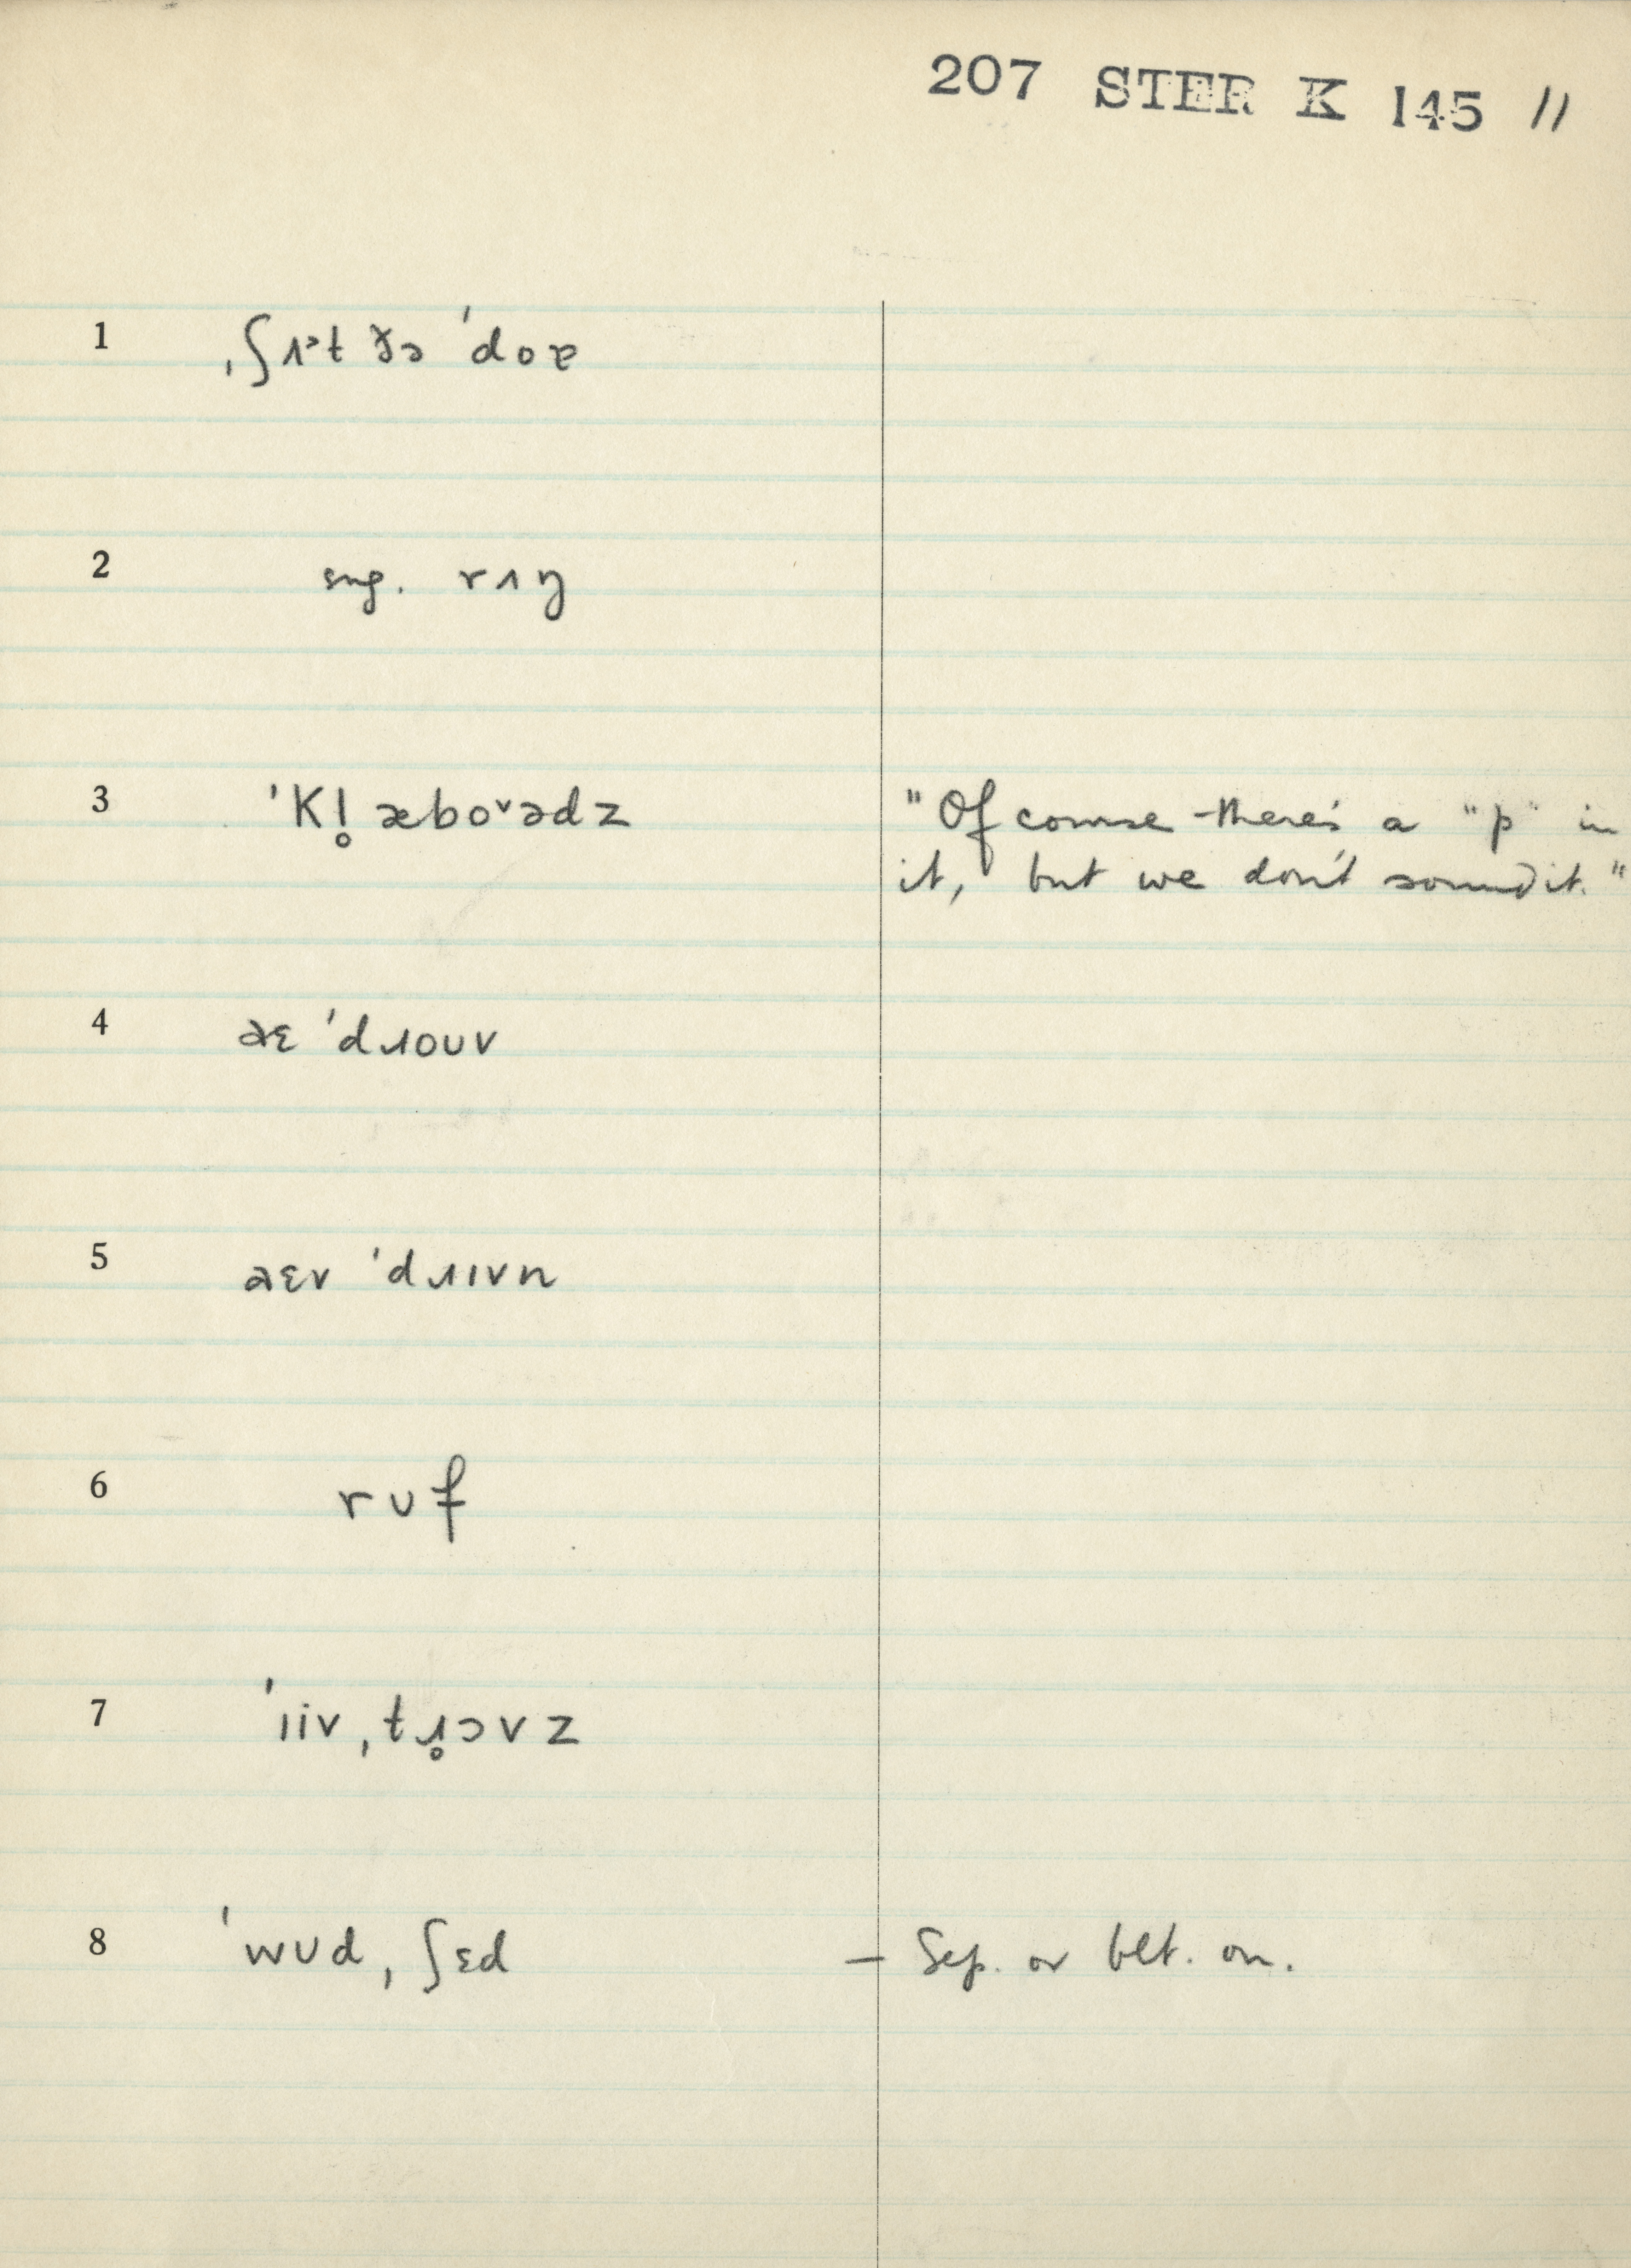 207 STER K 145 11
1 ˌʃʌᵊt ðə ˈdoɐ
2 sing. rʌŋ
3 ˈKl̥æboˇədz "Of course there's a "p" in
it, but we don't sound it."
4 əɛ ˈdɹouv
5 əɛv ˈdɹɪvn
6 rʊf
7 ˈɪiv ˌtɹ̥ɔvz
8 ˈwʊd ˌʃɛd — Sep. or blt. on.